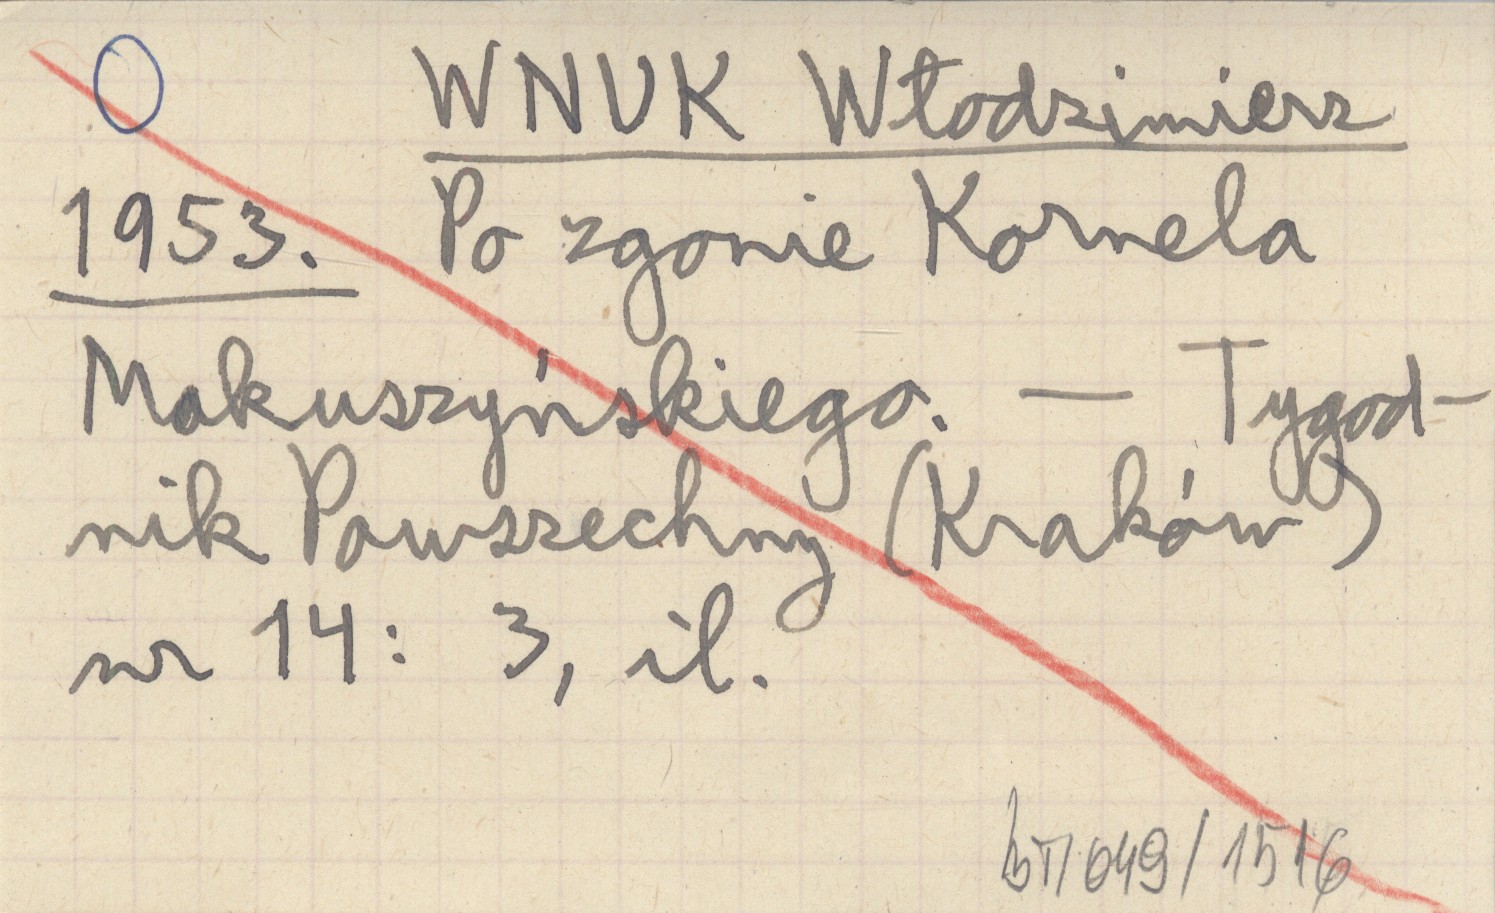 WNUK Włodzimierz
1953. Po zgonie Kornela
Makuszyńskiego. — Tygod-
nik Powszechny (Kraków)
nr 14: 3, il.
BT/049/1516